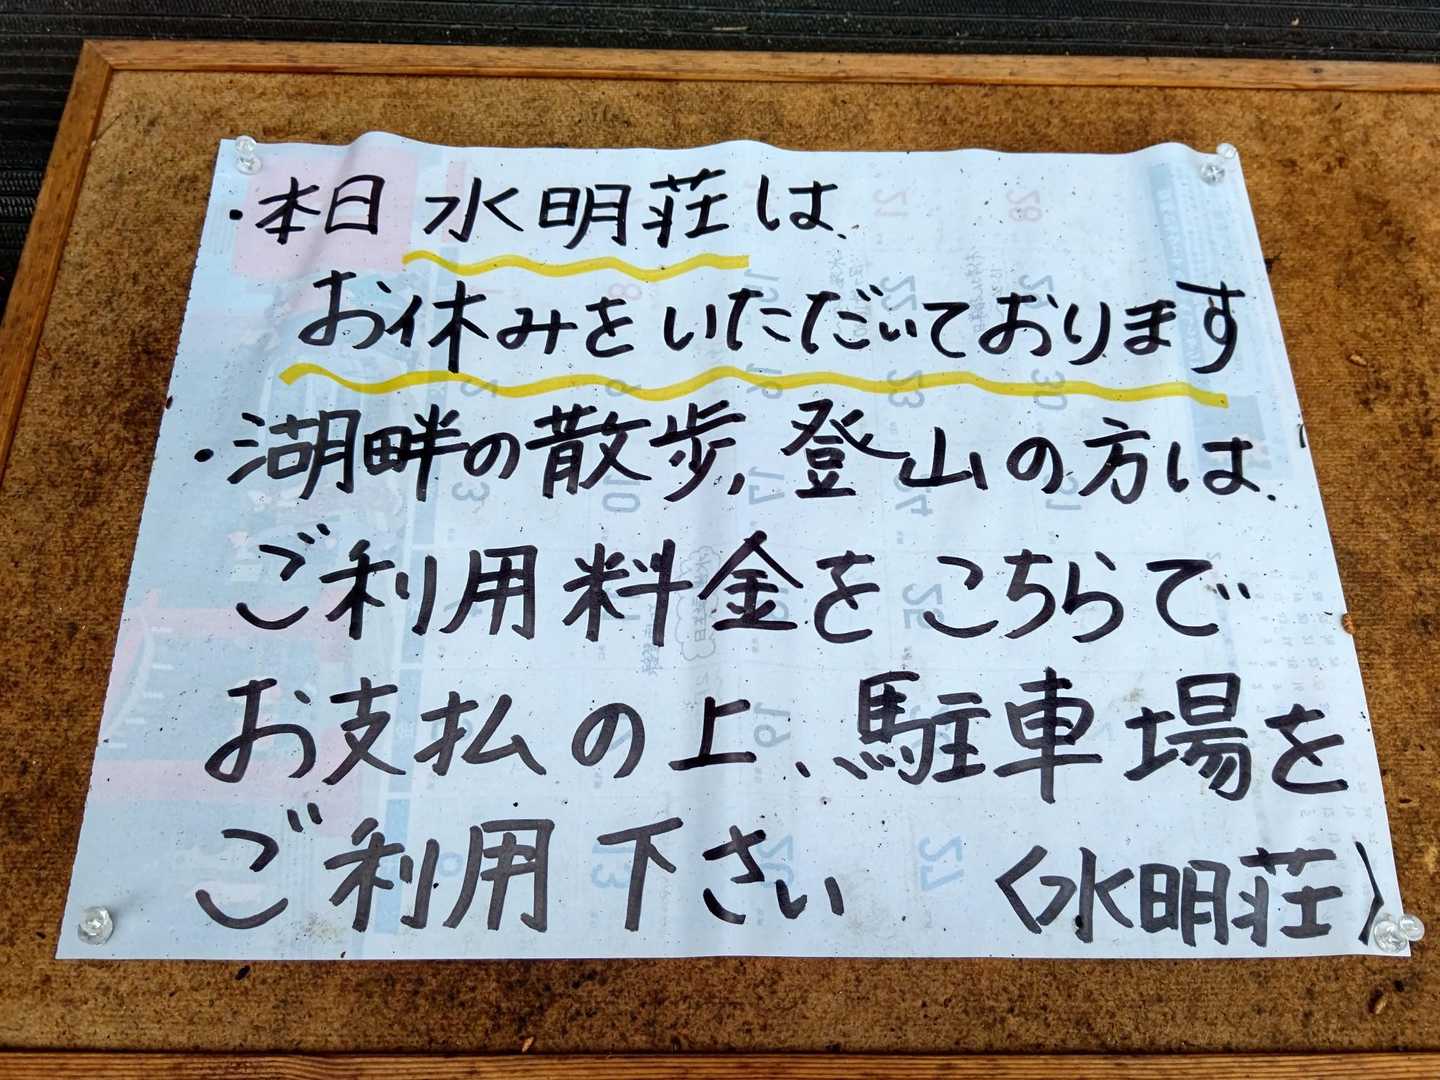 ・本日 水明荘は、
お休みをいただいております
・湖畔の散歩、登山の方は、
ご利用料金をこちらで
お支払の上、駐車場を
ご利用下さい 〈水明荘〉